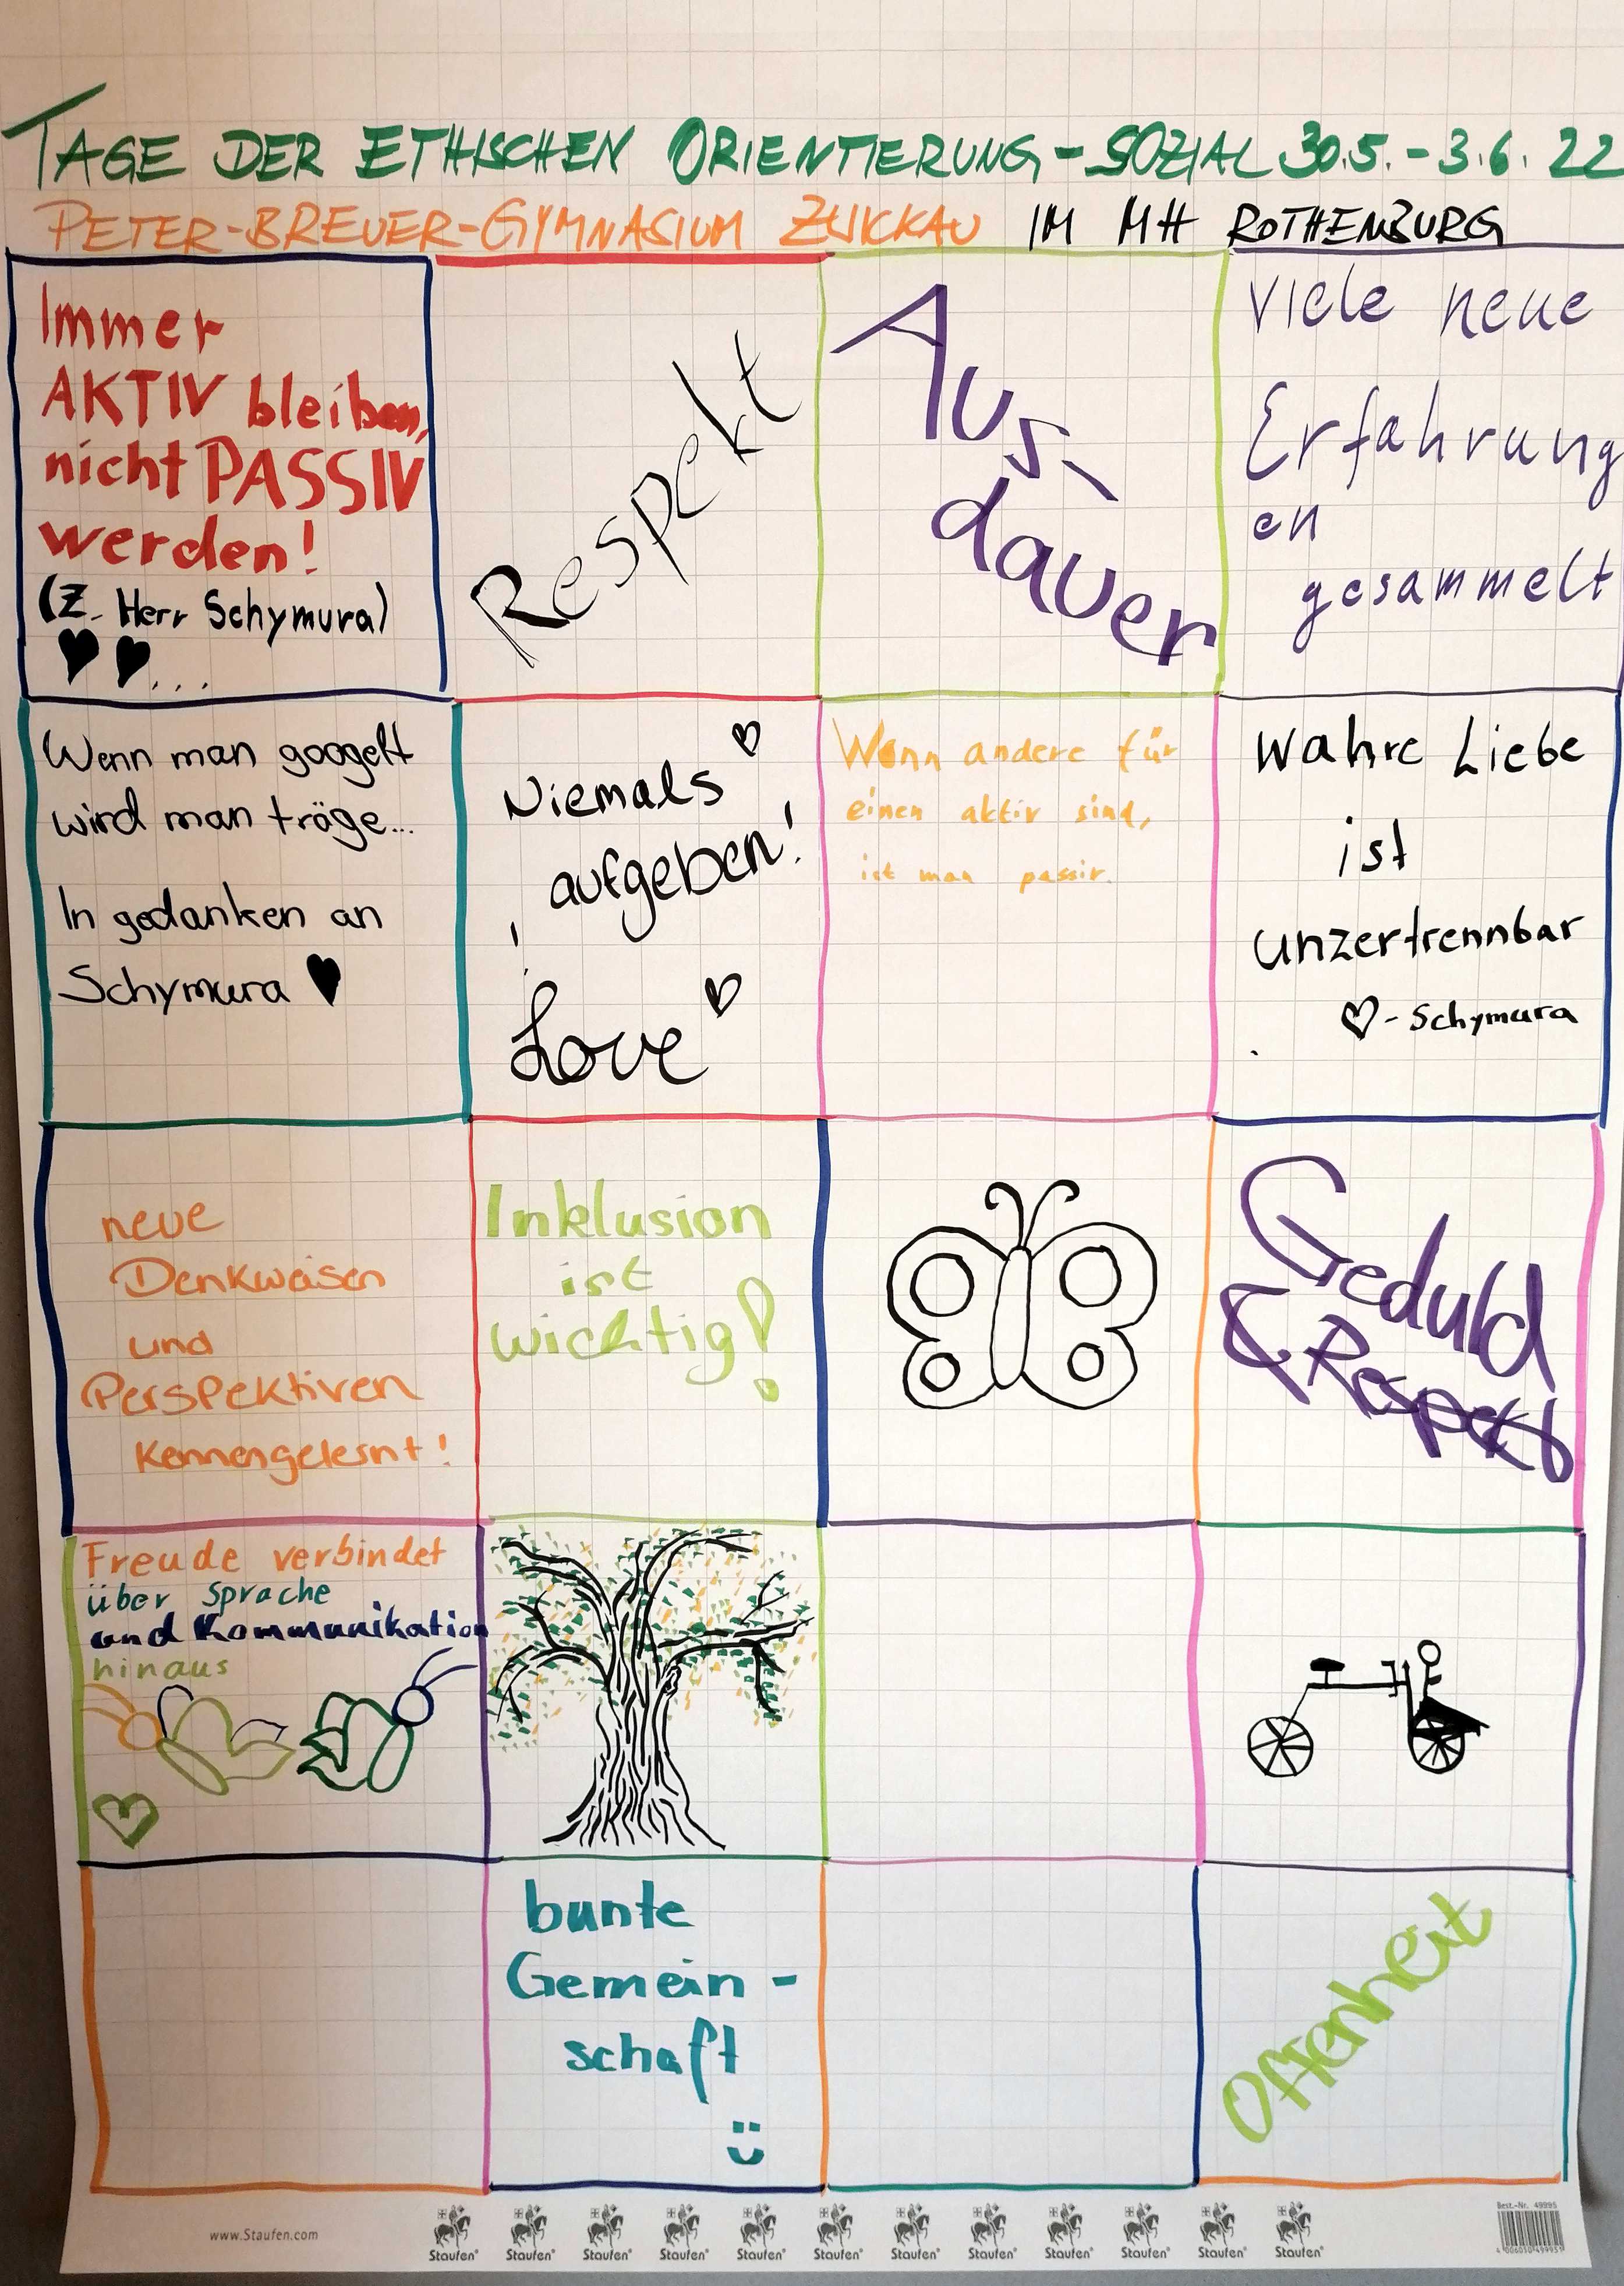 TAGE DER ETHISCHEN ORIENTIERUNG - SOZIAL 30.5. - 3.6. 22
PETER-BREUER-GYMNASIUM ZWICKAU IM MH ROTHENBURG
Immer
AKTIV bleiben,
nicht PASSIV
werden!
(Z. Herr Schymura)
...
Respekt
Aus-
dauer
Viele neue
Erfahrung
en
gesammelt
Wenn man googelt
wird man träge...
In gedanken an
Schymura
Niemals
aufgeben!
Love
Wenn andere für
einen aktiv sind,
ist man passiv.
Wahre Liebe
ist
unzertrennbar
- Schymura
neue
Denkweisen
und
Perspektiven
kennengelernt!
Inklusion
ist
wichtig!
Geduld
& Respekt
Freude verbindet
über Sprache
und Kommunikation
hinaus
bunte
Gemein-
schaft
Offenheit
www.Staufen.com
Staufen® Staufen® Staufen® Staufen® Staufen® Staufen® Staufen® Staufen® Staufen® Staufen® Staufen® Staufen®
Best.-Nr. 49995
4 006010 499951